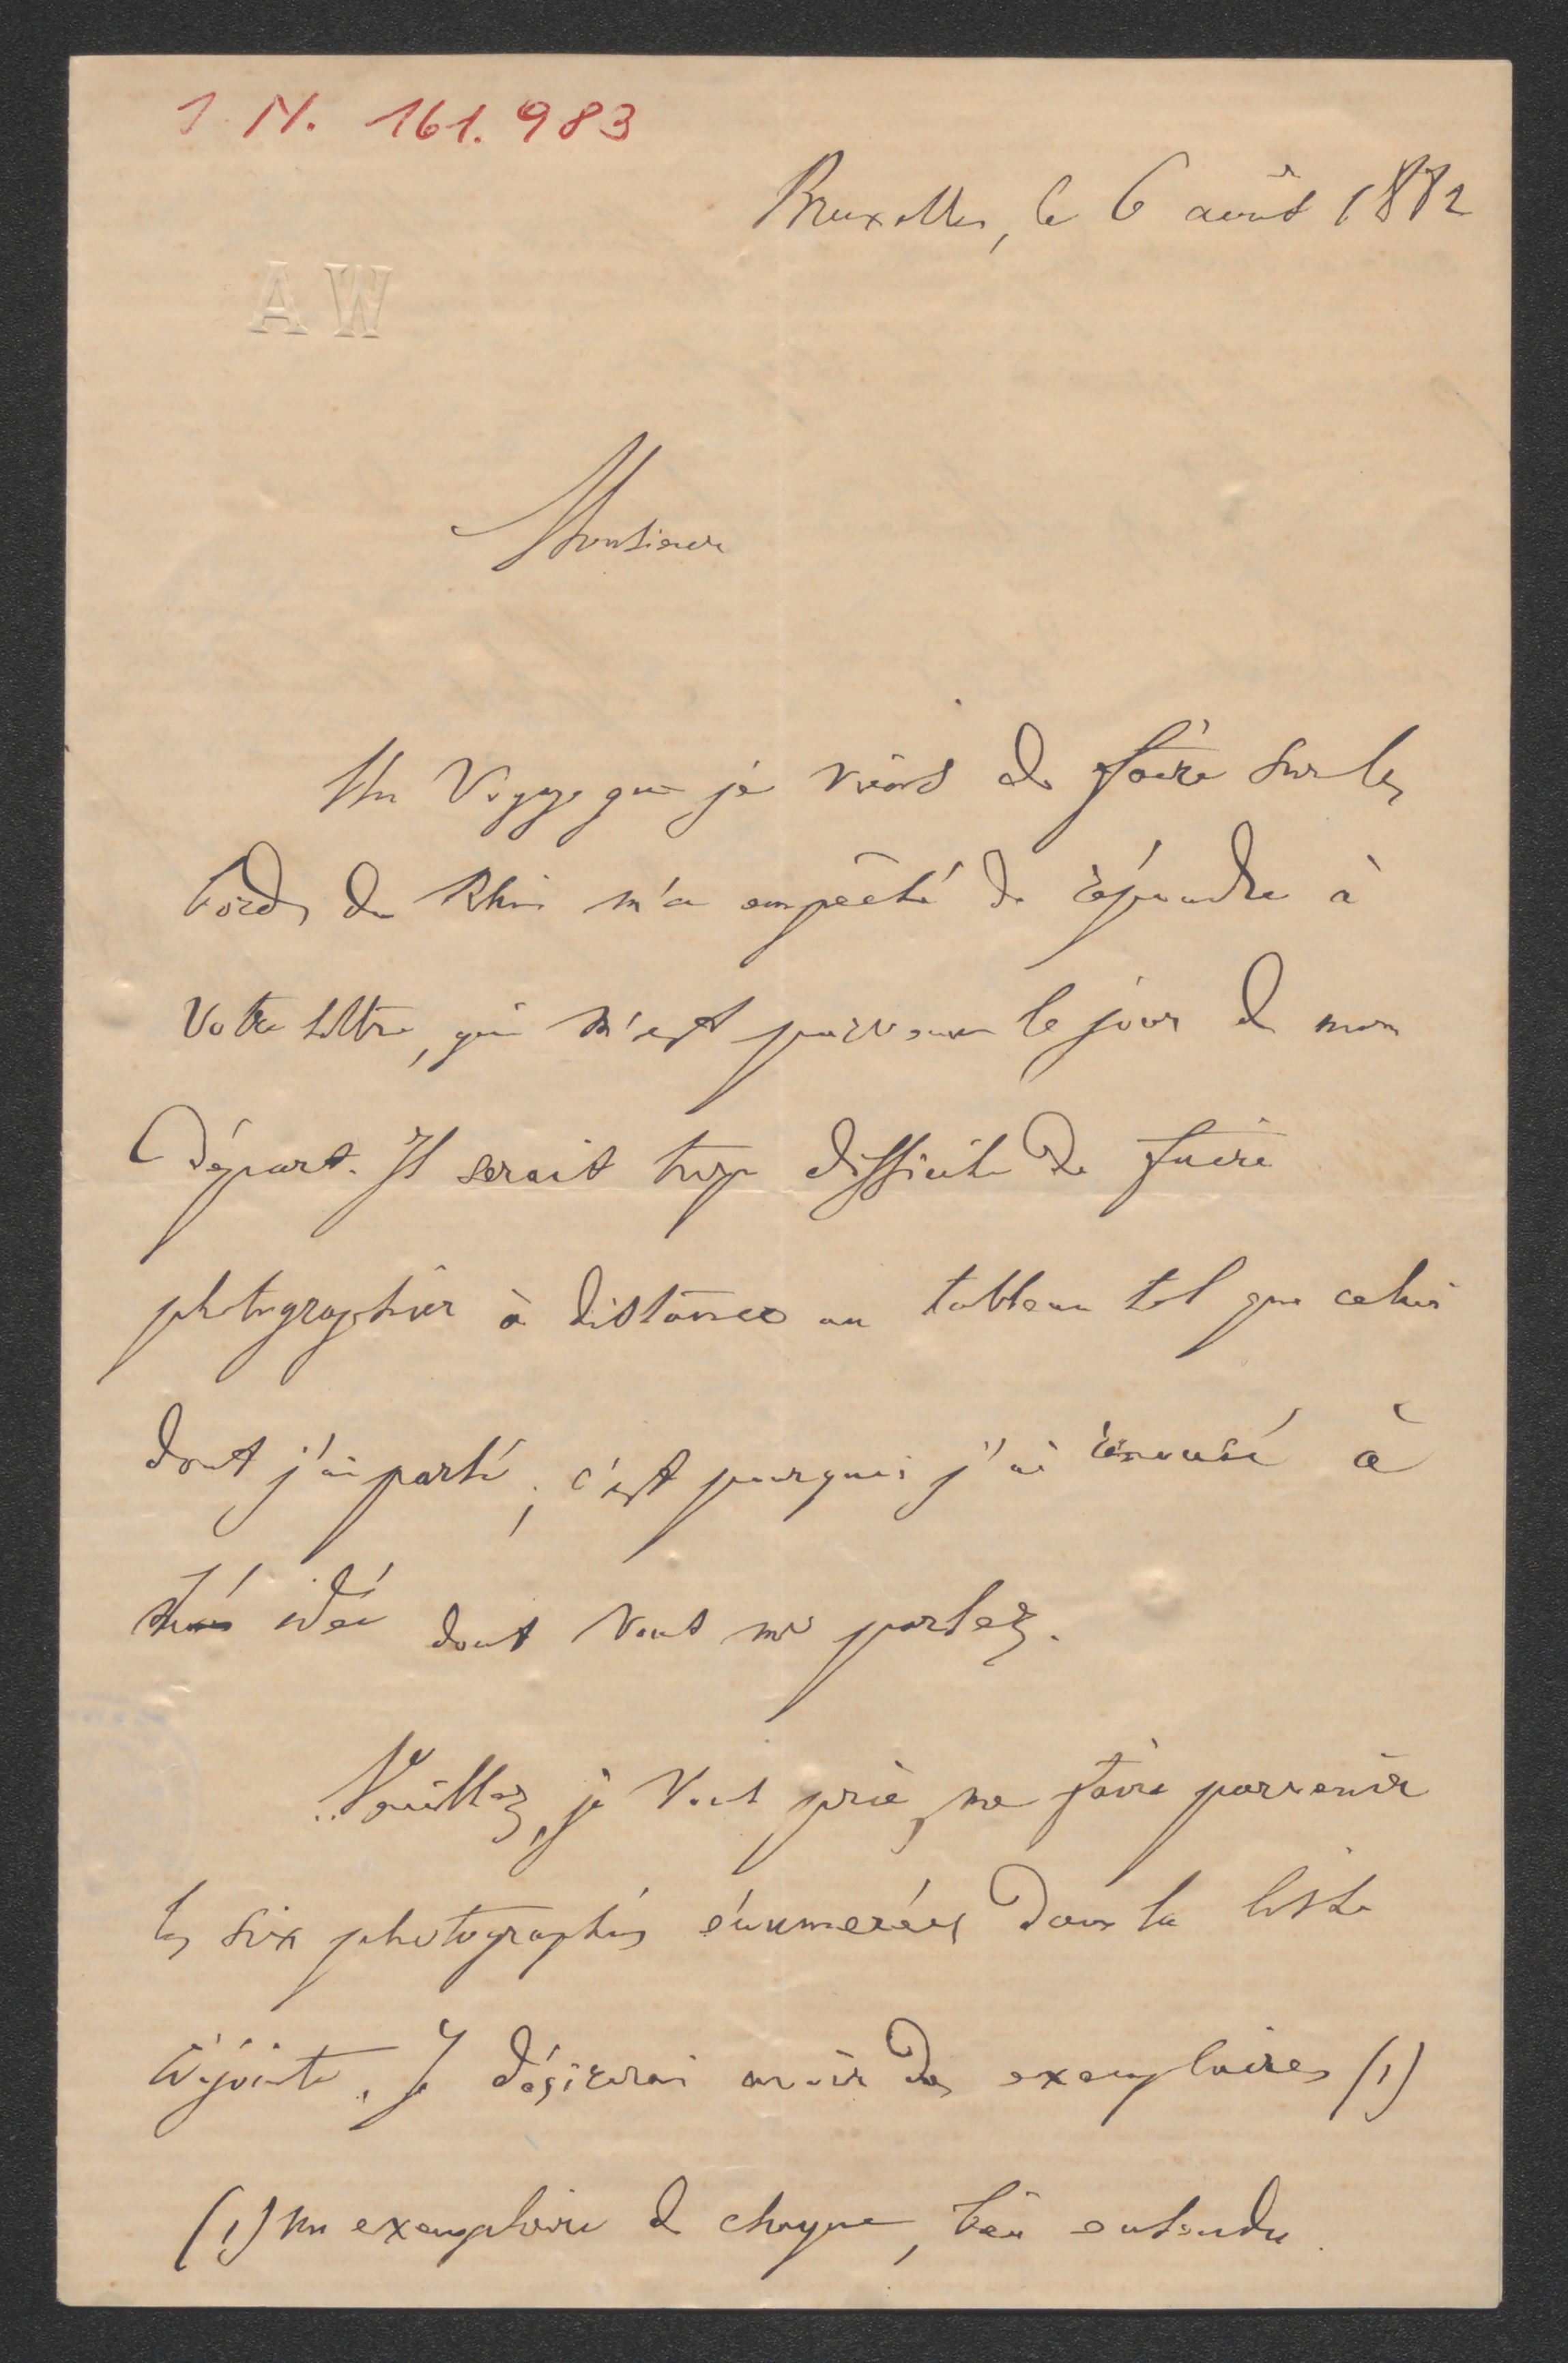 I. N. 161.983
Bruxelles, le 6 août 1882
AW
Monsieur
Un Voyage que je viens de faire sur les
bords du Rhin m'a empêché de répondre à
votre lettre, qui m'est parvenue le jour de mon
Départ. Il serait trop difficile de faire
photographier à distance un tableau tel que celui
dont j'ai parlé ; c'est pourquoi j'ai renoncé à
idée dont vous me parlez.
Veuillez, je vous prie, me faire parvenir
les six photographies énumérées dans la liste
ci-jointe. Je désirerai avoir des exemplaires (1)
(1) un exemplaire de chaque, bien entendu.